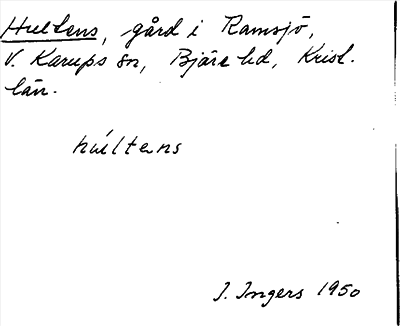 Hultens, gård i Ramsjö,
V. Karups sn, Bjäre hd, Krist.
län.
húltens
I. Ingers 1950